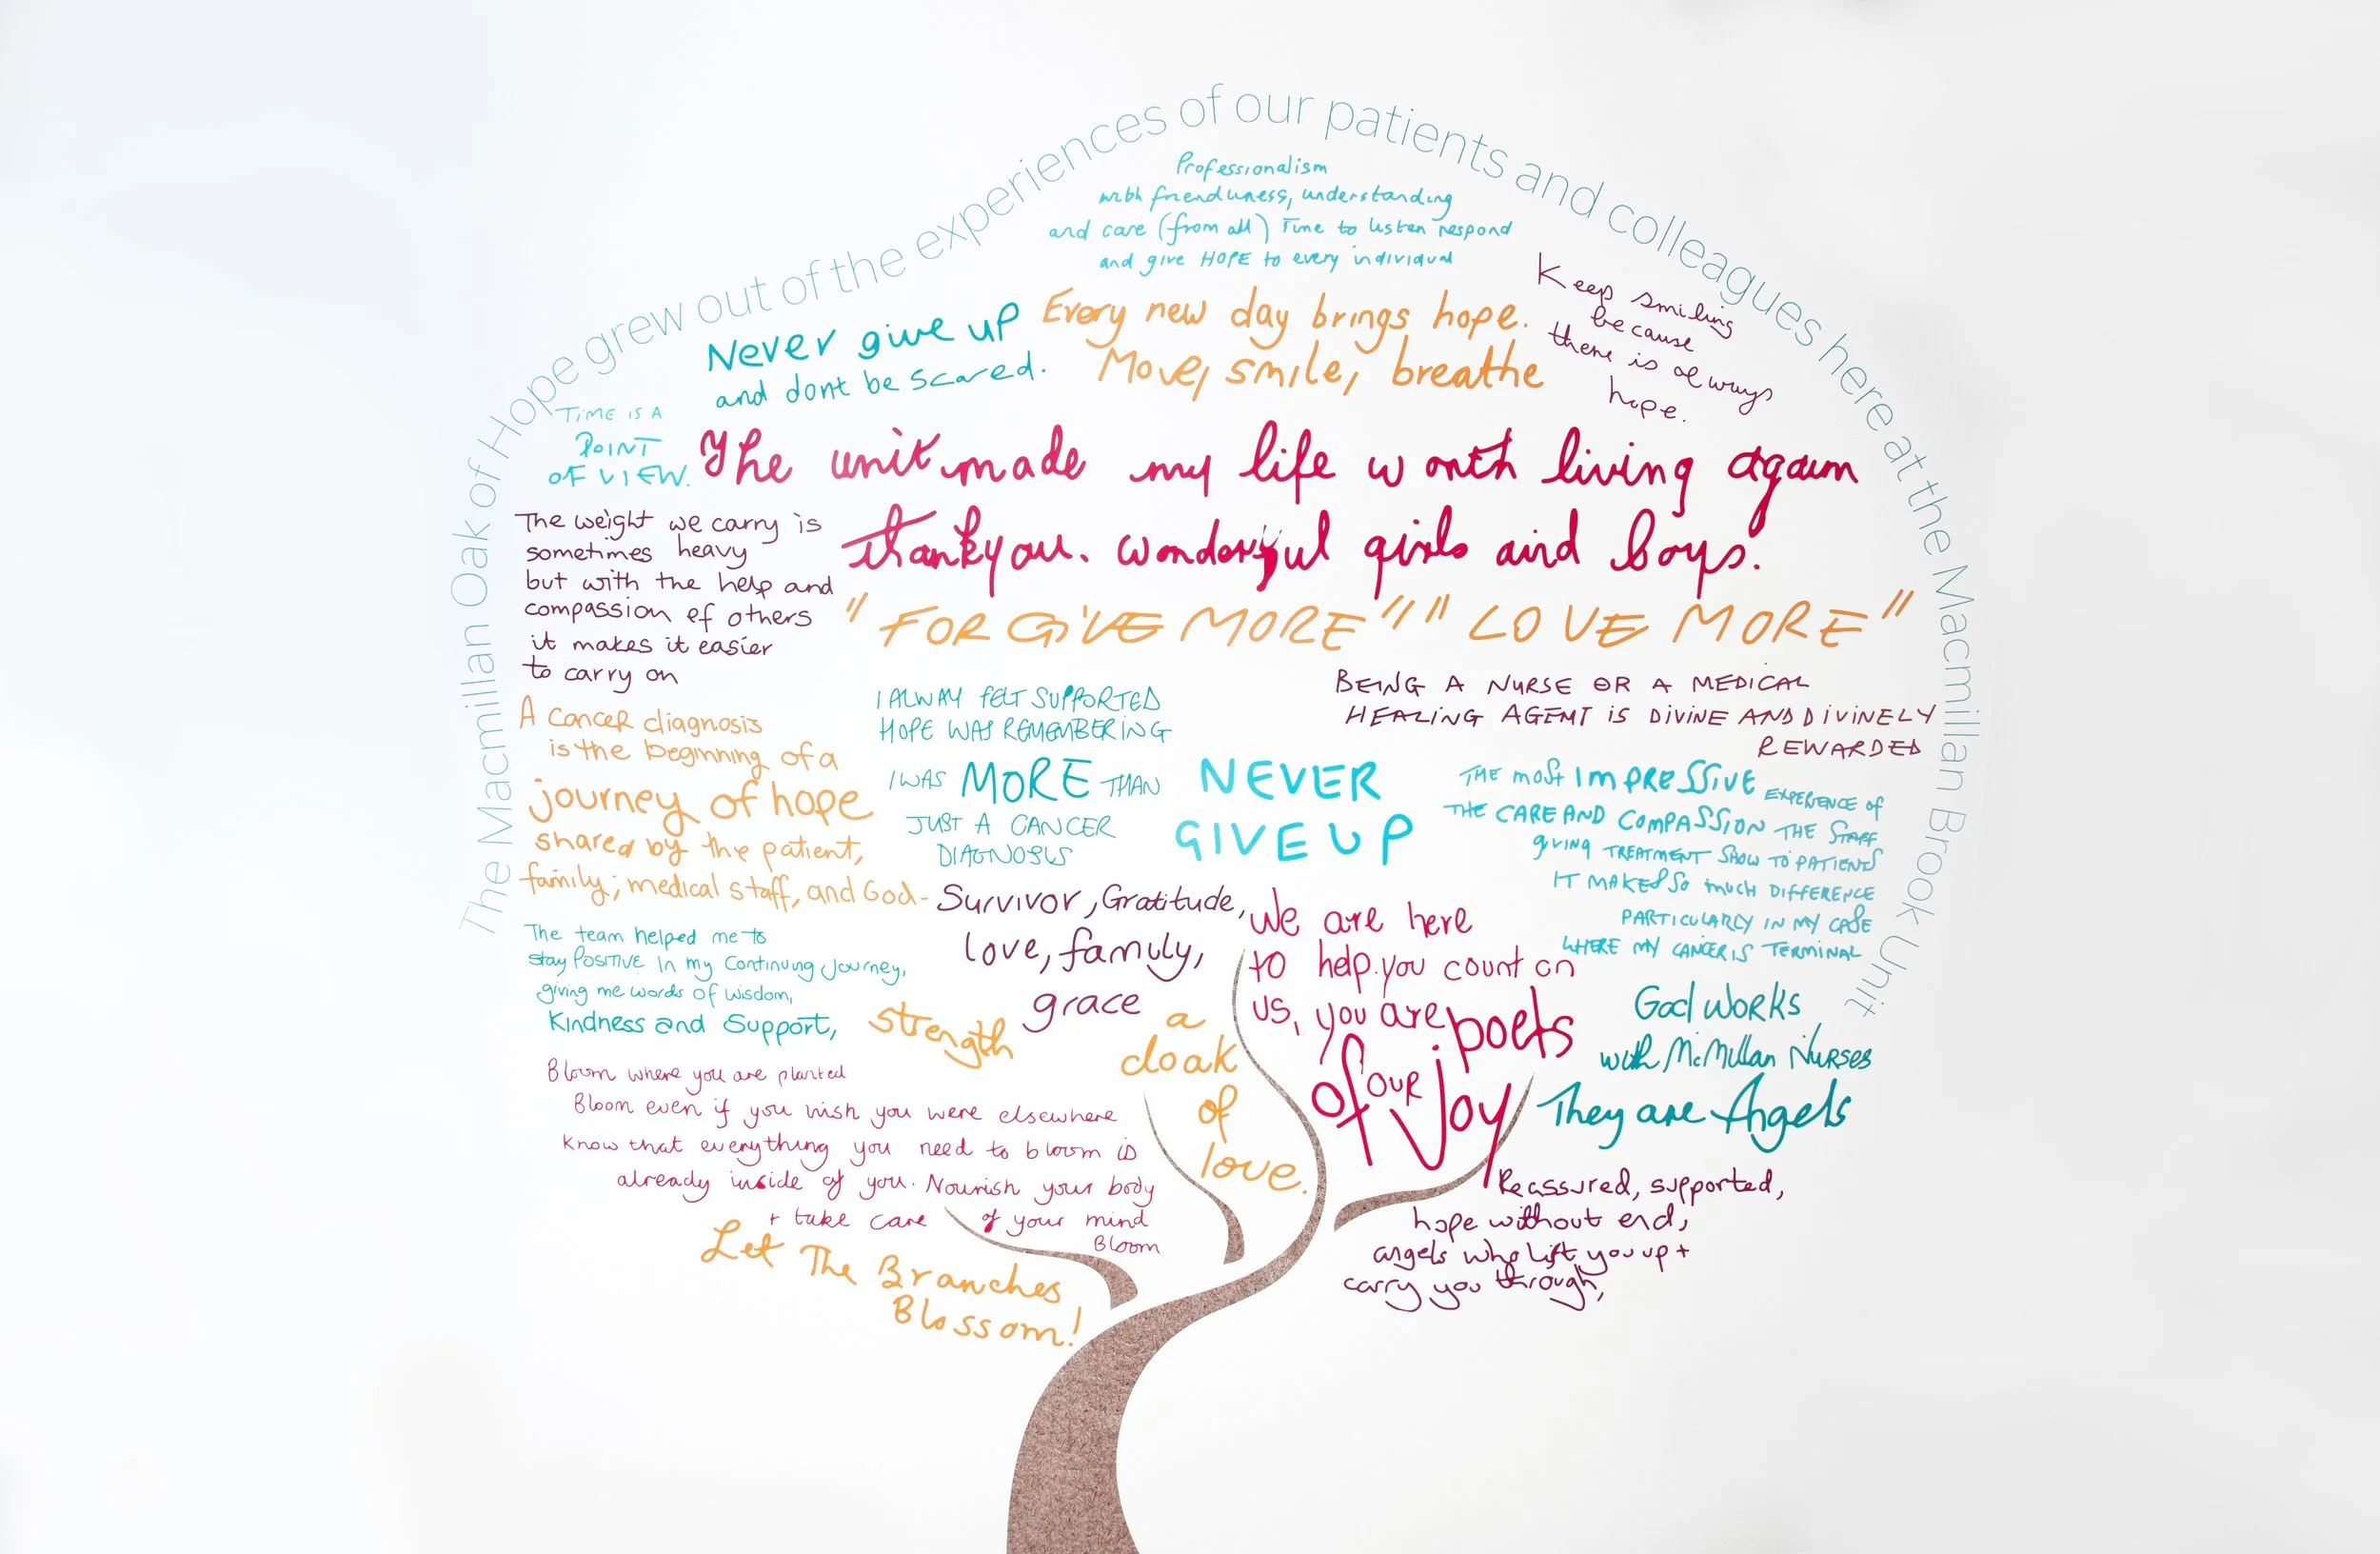 The Macmillan Oak of Hope grew out of the experiences of our patients and colleagues here at the Macmillan Brook Unit
Professionalism
with friendliness, understanding
and care (from all) Time to listen respond
and give HOPE to every individual
Never give up
and dont be scared.
Every new day brings hope.
Move, smile, breathe
Keep smiling
because
there is always
hope.
TIME IS A
POINT
OF VIEW.
The unit made my life worth living again
thankyou. wonderful girls and boys.
The weight we carry is
sometimes heavy
but with the help and
compassion of others
it makes it easier
to carry on
"FORGIVE MORE" "LOVE MORE"
A cancer diagnosis
is the beginning of a
journey of hope
shared by the patient,
family; medical staff, and God-
I ALWAY FELT SUPPORTED
HOPE WAS REMEMBERING
I WAS MORE THAN
JUST A CANCER
DIAGNOSIS
NEVER
GIVE UP
BEING A NURSE OR A MEDICAL
HEALING AGENT IS DIVINE AND DIVINELY
REWARDED
THE most IMPRESSIVE EXPERIENCE of
THE CARE AND COMPASSION THE STAFF
giving TREATMENT SHOW TO PATIENTS
IT MAKES SO much DIFFERENCE
PARTICULARLY IN MY CASE
WHERE MY CANCER IS TERMINAL
The team helped me to
stay POSITIVE In my Continuing Journey,
giving me words of wisdom,
Kindness and Support,
Survivor, Gratitude,
love, family,
grace
strength
a
cloak
of
love.
We are here
to help. you count on
us, you are poets
of our Joy
God works
with McMillan Nurses
They are Angels
Bloom where you are planted
Bloom even if you wish you were elsewhere
Know that everything you need to bloom is
already inside of you. Nourish your body
+ take care of your mind
Bloom
Let The Branches
Blossom!
Reassured, supported,
hope without end,
angels who lift you up +
carry you through,